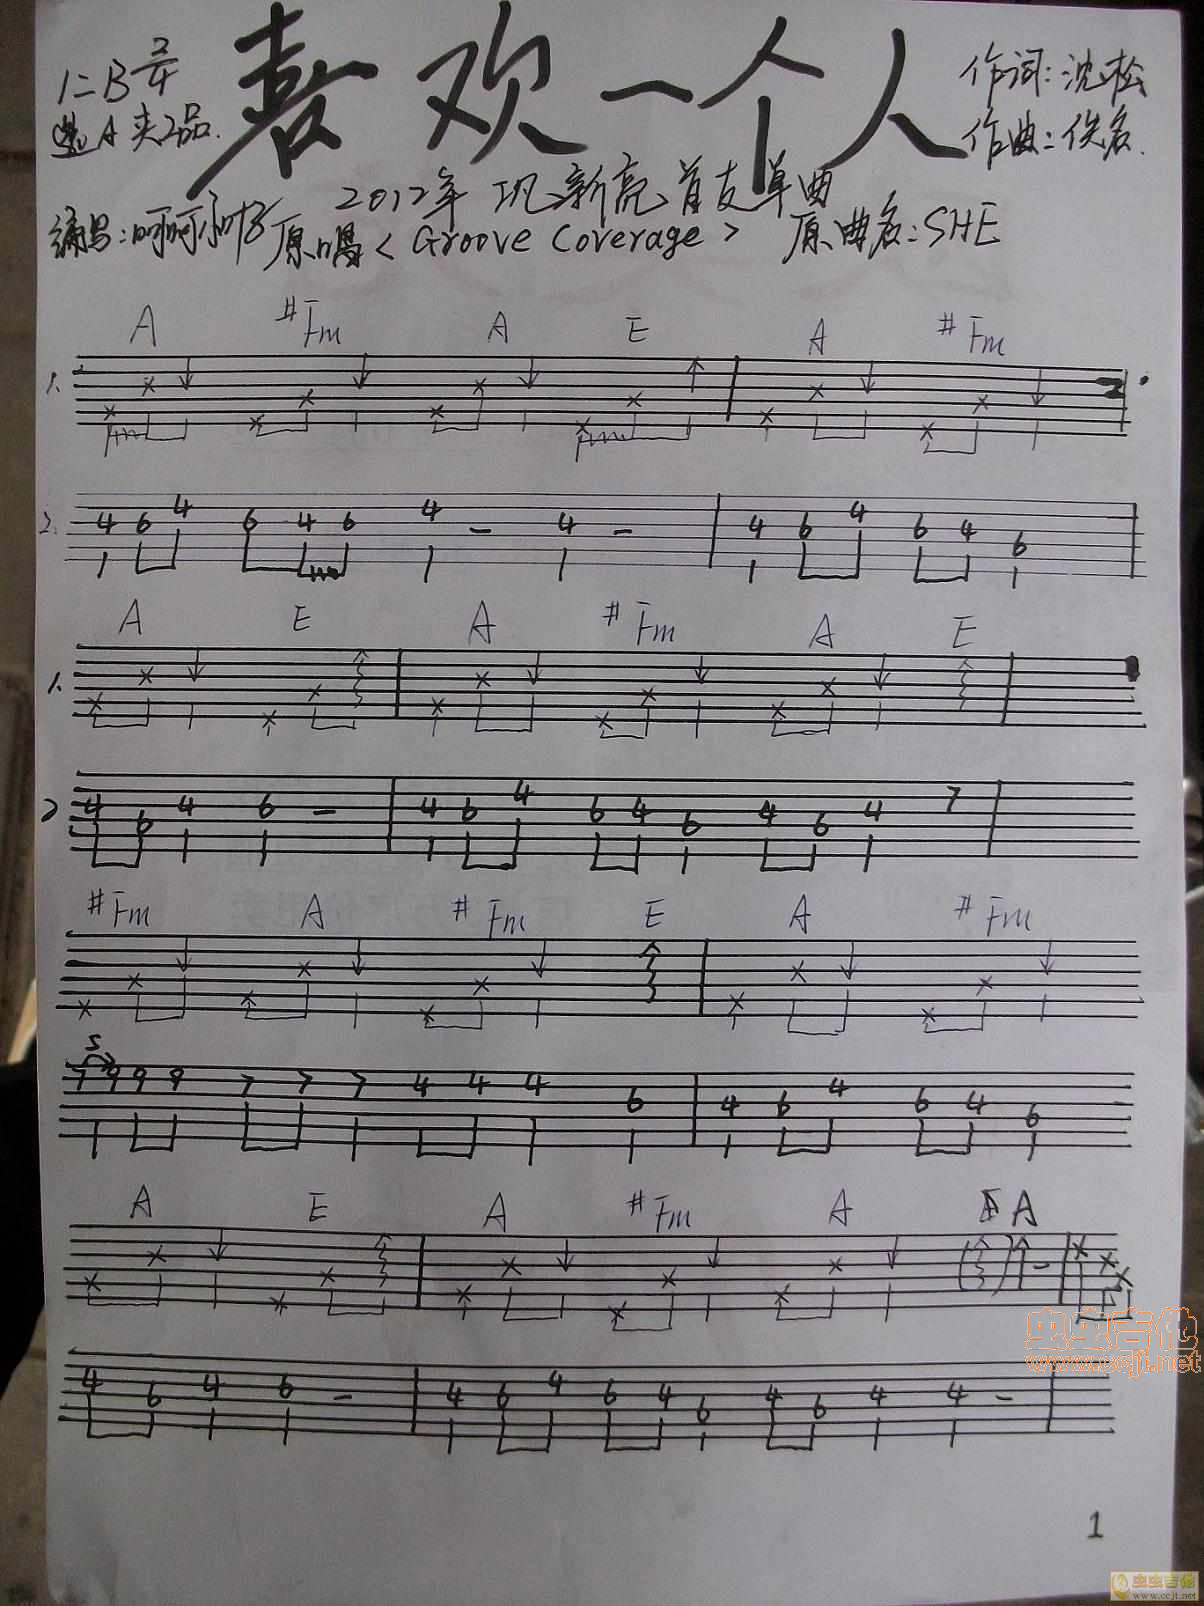 喜欢一个人
1=B 2/4
选A 夹2品.
作词:沈松
作曲:佚名.
2012年 巩新亮首支单曲
编写:呵呵 原唱<Groove Coverage> 原曲名:SHE
A #Fm A E A #Fm
1.
2. 4 6 4 6 4 6 4 - 4 - 4 6 4 6 4 6
A E A #Fm A E
1.
2 4 6 4 6 - 4 6 4 6 4 6 4 6 4 7
#Fm A #Fm E A #Fm
S
7 9 9 9 7 7 7 4 4 4 6 4 6 4 6 4 6
A E A #Fm A A
4 6 4 6 - 4 6 4 6 4 6 4 6 4 4 -
虫虫吉他
www.ccjt.net
1
虫虫吉他
www.ccjt.net